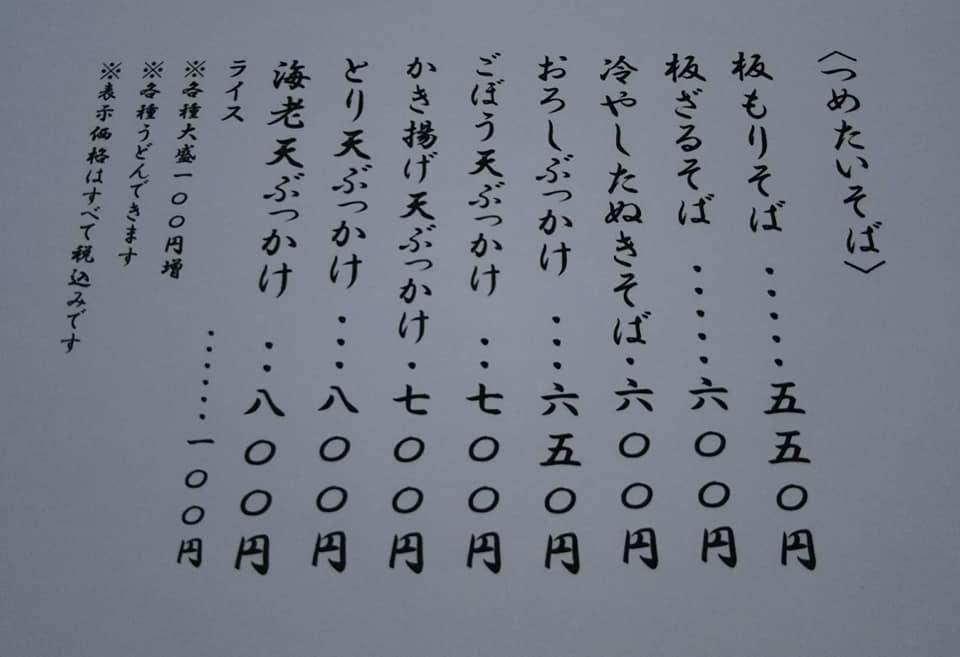 〈つめたいそば〉
板もりそば ・・・・・五五〇円
板ざるそば ・・・・・六〇〇円
冷やしたぬきそば・六〇〇円
おろしぶっかけ ・・・六五〇円
ごぼう天ぶっかけ ・・七〇〇円
かき揚げ天ぶっかけ・七〇〇円
とり天ぶっかけ・・・八〇〇円
海老天ぶっかけ ・・八〇〇円
ライス ・・・・・・一〇〇円
※各種大盛一〇〇円増
※各種うどんできます
※表示価格はすべて税込みです